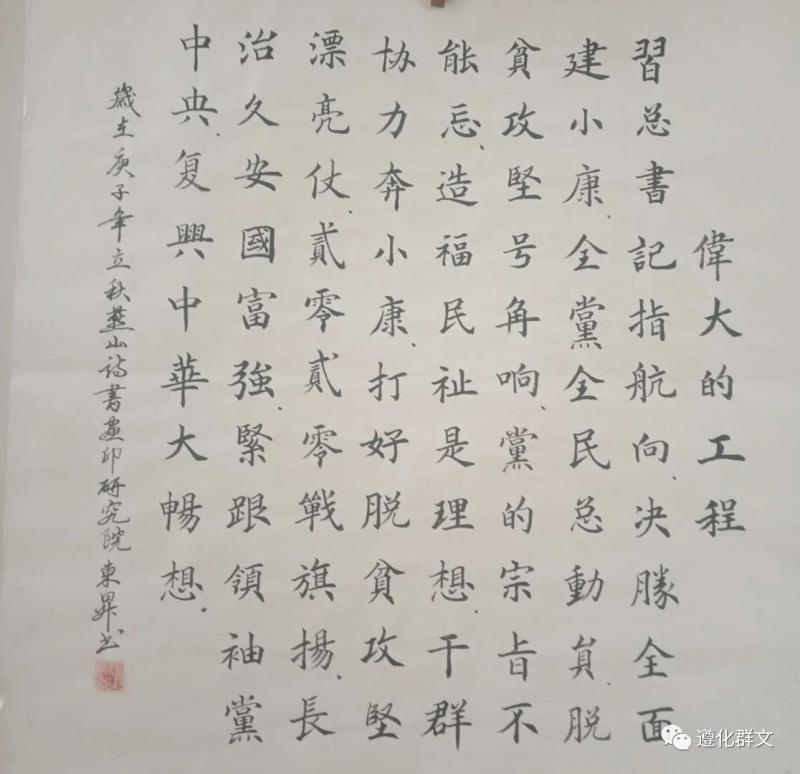 偉大的工程
習总書記指航向、决勝全面
建小康、全黨全民总動員、脱
貧攻堅号角响、黨的宗旨不
能忘、造福民祉是理想、干群
协力奔小康、打好脱貧攻堅
漂亮仗、貳零貳零戰旗揚、長
治久安國富強、緊跟領袖黨
中央、复興中華大暢想、
歲在庚子年立秋燕山詩書畫印研究院東昇书
遵化群文